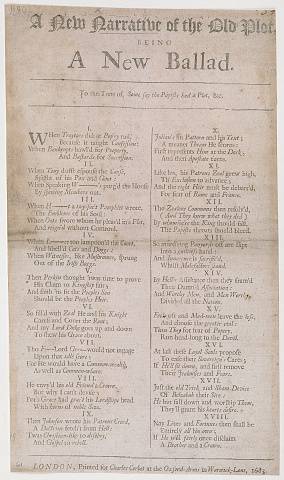 A New Narrative of the Old Plot,
BEING
A New Ballad.
To the Tune of, Some say the Papists had a Plot, &c.
I.
WHen Traytors did at Popery rail,
Because it taught Confession:
When Bankrupts bawl'd for Property,
And Bastards for Succession.
II.
When Tony durst espouse the Cause,
Spight of his Pox and Gout;
When Speaking purg'd the House
By spueing Members out.
III.
When Pamphlets wrote,
The of his Soul:
When Oats swore whom he pleas'd in's Plot,
And reign'd without Controul.
IV.
When the Court,
And libell'd Cats and Doggs;
When Witnesses, like Mushrooms, sprung
Out of the Irish Boggs.
V.
Then Perkin thought 'twas time to prove
His Claim to Kingship fair;
And swift his the Peoples Son
Should be the Peoples Heir.
VI.
So fill'd with Zeal He and his Knight
Caress and Cover the Rout;
And my Lord Duke goes up and down
To shew his Grace about.
VII.
Tho would not ingage
Upon that safe score;
For He would have a Common-wealth,
As well as Common-whore.
VIII.
He envy'd his old Friend a Crown,
But why I can't devise;
For's Grace had grac't his Lordships head
With horns of noble Size.
IX.
Then Johnson wrote his Patrons Creed,
A Doctrine fetch't from Hell:
'Twas Christian-like to disobey,
And Gospel to rebell.
X.
Julian's his Pattern and his Text;
A meaner Theam He scorns:
First represents Him at the Desk;
And then Apostate turns.
XI.
Like his, his Patrons Zeal grew high,
Th' Exclusion to advance;
And the right Heir must be debarr'd,
For fear of Rome and France.
XII.
The Zealous Commons then resolv'd,
(And They knew what they did)
By whomsoever the King should fall,
The Papists throats should bleed.
XIII.
So murdering Papers off are slipt
Into a owner's hand:
And Innocence is Sacrific'd,
Whilst Malefactors stand.
XIV.
By Hell's Assistance then they fram'd
Their Damn'd Association:
And Worthy Men, and Men Worthy,
Divided all the Nation.
XV.
Fools and Mad-men leave the best,
And choose the greater evil:
Thus They for fear of Popery,
Run head-long to the Devil.
XVI.
At last these Loyal Souls propose
To ease their Sovereign's Cares;
If He'll sit down, and first remove
Their Jealousies and Fears.
XVII.
Just the old Trick, and Sham Device
Of Rebekah their Sire;
He but fall down and worship Them,
They'll grant his hearts desire.
XVIII.
Nay Lives and Fortunes then shall be
Entirely all his own;
If He will fairly once disclaim
A Brother and a Crown.
LONDON, Printed for Charles Corbet at the Oxford-Arms in Warwick-Lane, 1683.